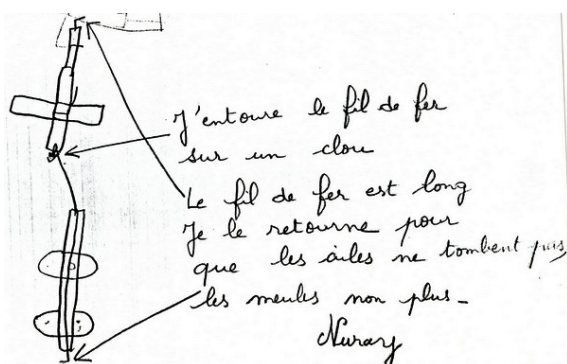 J'entoure le fil de fer
sur un clou
Le fil de fer est long
Je le retourne pour
que les ailes ne tombent pas
les meules non plus_
Nuray